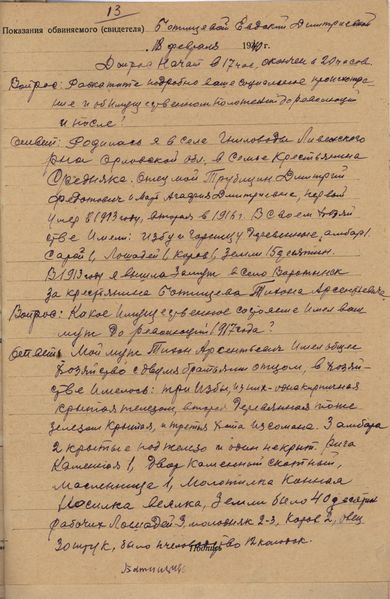 13
Показания обвиняемого (свидетеля) Ботищевой Евдокии Дмитриевной
18 февраля 1941г.
Допрос начат в 17 час, окончен в 20 часов.
Вопрос: Расскажите подробно ваше социальное происхожде-
ние и об имущественном положении до революции
и после?
Ответ: Родилась я в селе Ливенского
р-на Орловской обл. в семье крестьянина
Середняка. Отец мой Трубицин Дмитрий
Федотович и мать Агафия Дмитриевна, первой
умер в 1913 году, вторая в 1916 г. В своем хозяй-
стве имели: избу и горницу деревянные, амбар 1
Сарай 1, Лошадей 1, Коров 1, Земли 5 десятин.
В 1913 году я вышла замуж в село Воротынск
за крестьянина Ботищева Тихона Арсентьевича.
Вопрос: Какое имущественное состояние имел ваш
муж до революции 1917 года?
Ответ: Мой муж Тихон Арсентьевич имел общее
хозяйство с двумя братьями и отцом, в хозяй-
стве имелось: три избы, из них одна кирпичная
крытая железом, вторая деревянная тоже
железом крытая, и третья хата из самана. 3 амбара
2 крытые под железо и один некрыт. Рига
Каменная 1, Двор каменный скотный,
масленница 1, Молотилка конная
Носилка веялка, Земли было 40 десятин
рабочих Лошадей 3, молодняк 2-3, Коров 2, овец
30 штук, было пчеловодство 12 колодок.
Подпись